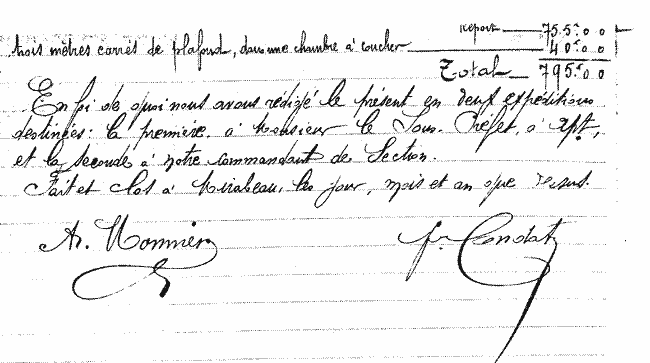 Report 755f00
trois mètres carrés de plafond, dans une chambre à coucher 40f00
Total 795f00
En foi de quoi nous avons rédigé le présent en deux expéditions
destinées: la première à Monsieur le Sous-Préfet, à Apt,
et la seconde à notre Commandant de Section.
Fait et clos à Mirabeau, les jour, mois et an que dessus.
A. Monnier fr. Condat